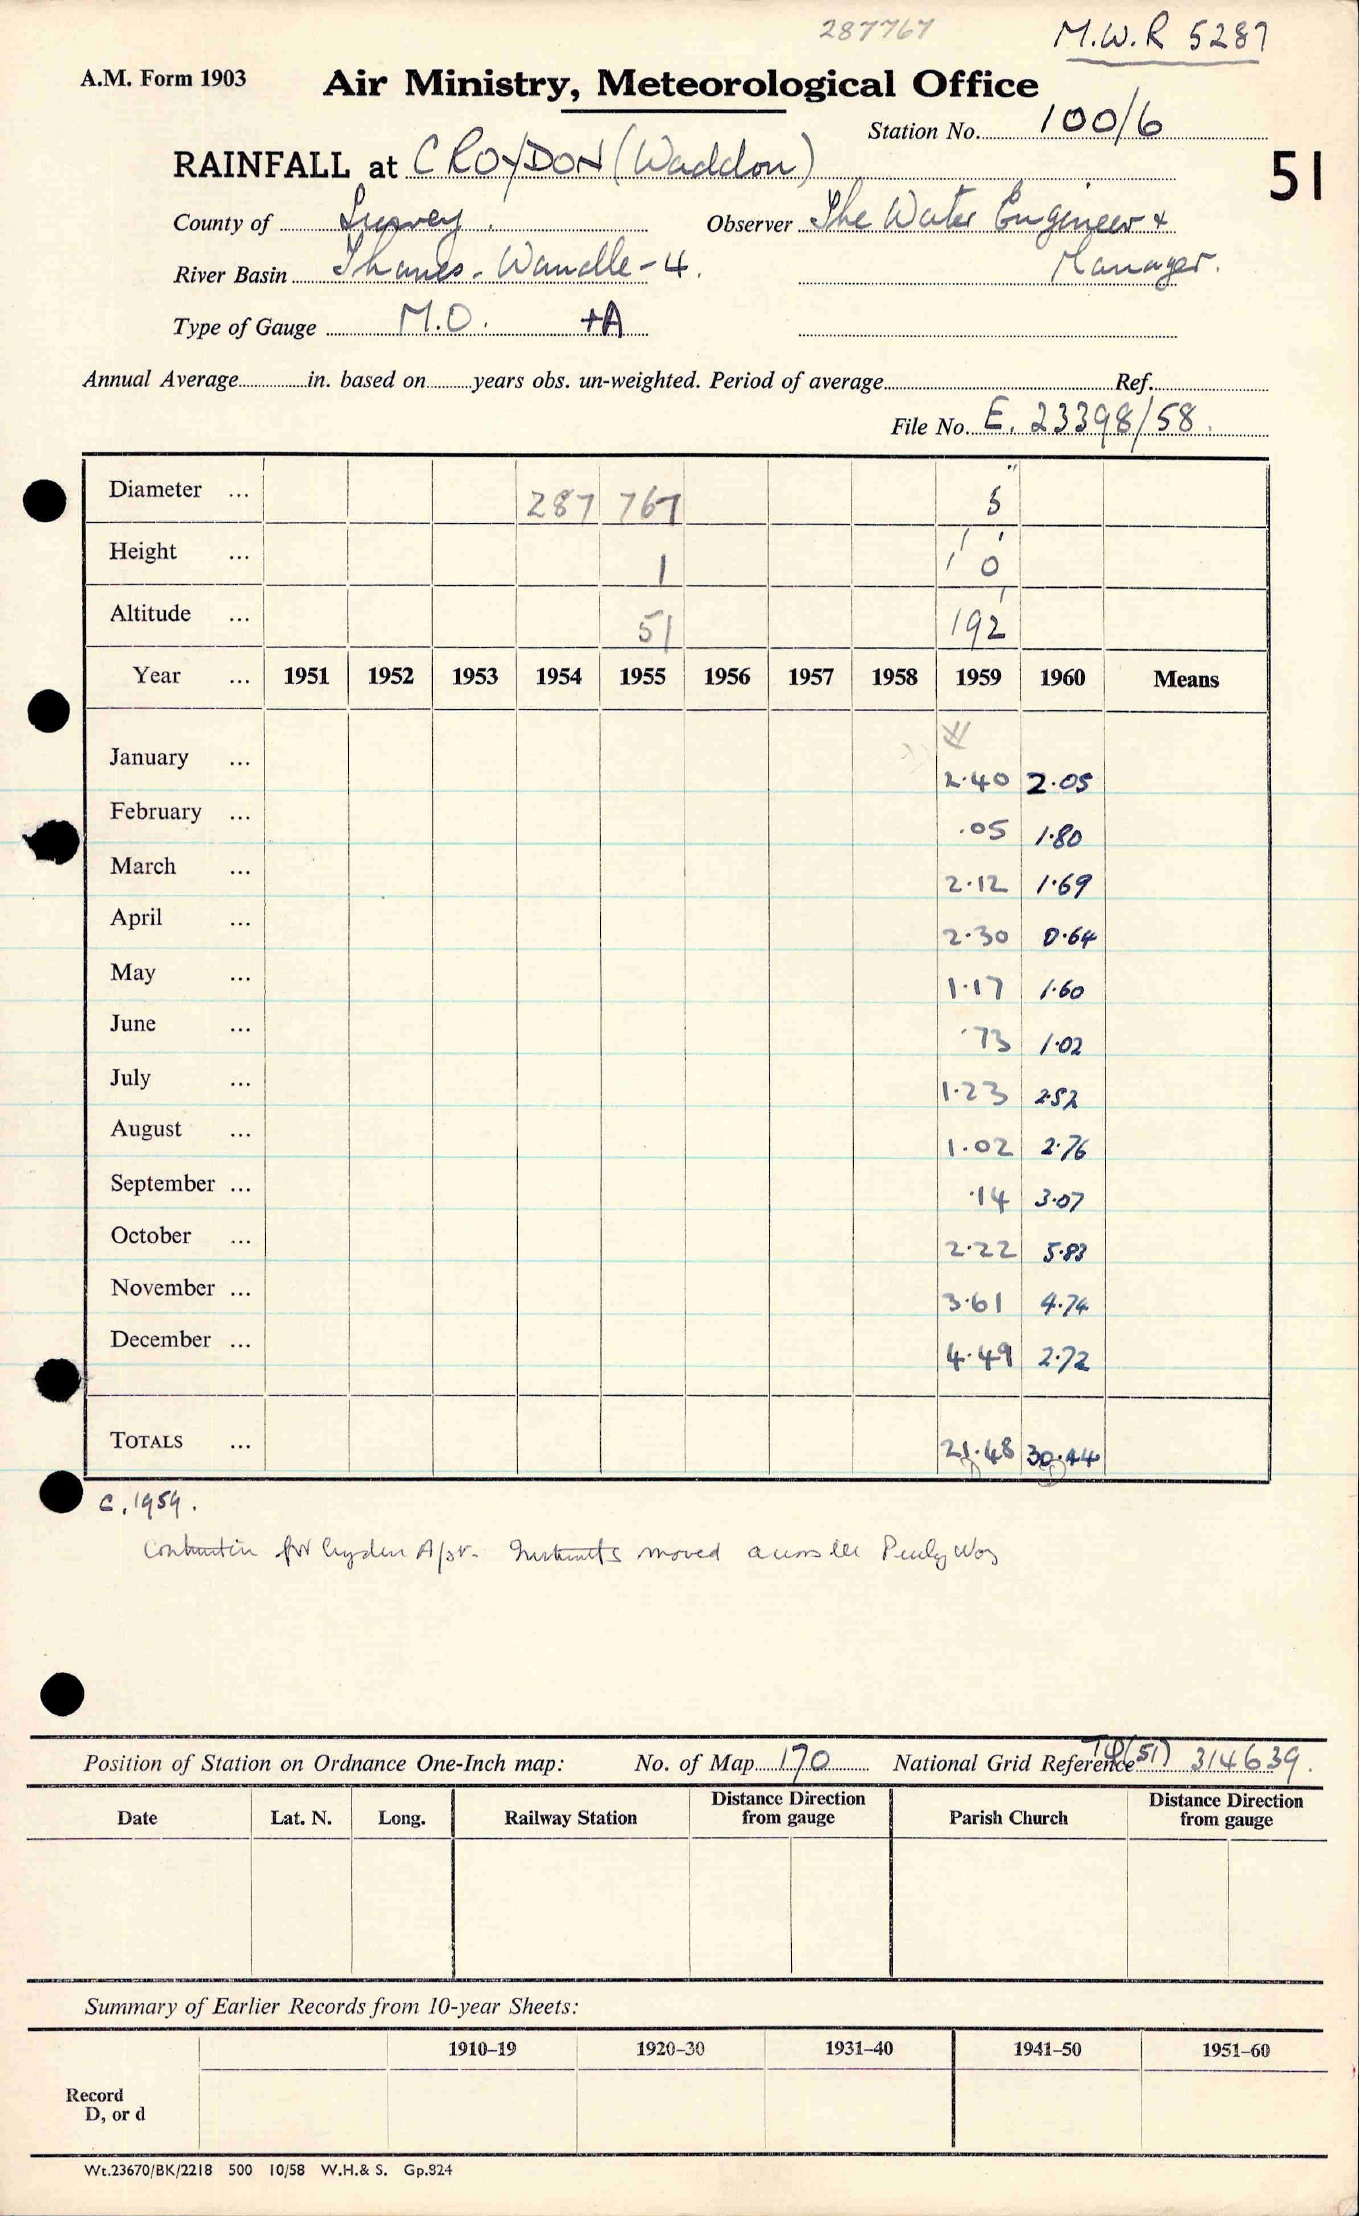 287767
M.W.R 5287
A.M. Form 1903
Air Ministry, Meteorological Office
Station No. 100/6
RAINFALL at CROYDON (Waddon)
51
County of Surrey. Observer The Water Engineer &
River Basin Thames - Wandle - 4. Manager.
Type of Gauge M.O. +A
Annual Average in. based on years obs. un-weighted. Period of average Ref.
File No. E. 23398/58.
Diameter ... 287 767 5"
Height ... 1 1' 0
Altitude ... 51 192'
Year ... 1951 1952 1953 1954 1955 1956 1957 1958 1959 1960 Means
January ... 2.40 2.05
February ... .05 1.80
March ... 2.12 1.69
April ... 2.30 0.64
May ... 1.17 1.60
June ... .73 1.02
July ... 1.23 2.52
August ... 1.02 2.76
September ... .14 3.07
October ... 2.22 5.83
November ... 3.61 4.74
December ... 4.49 2.72
TOTALS ... 21.48 30.44
C. 1959.
for Croydon Apt. Instruments moved across the Purley Way
Position of Station on Ordnance One-Inch map: No. of Map 170 National Grid Reference (51) 314639.
Date Lat. N. Long. Railway Station Distance Direction from gauge Parish Church Distance Direction from gauge
Summary of Earlier Records from 10-year Sheets:
1910–19 1920–30 1931–40 1941–50 1951–60
Record
D, or d
Wt.23670/BK/2218 500 10/58 W.H.& S. Gp.824